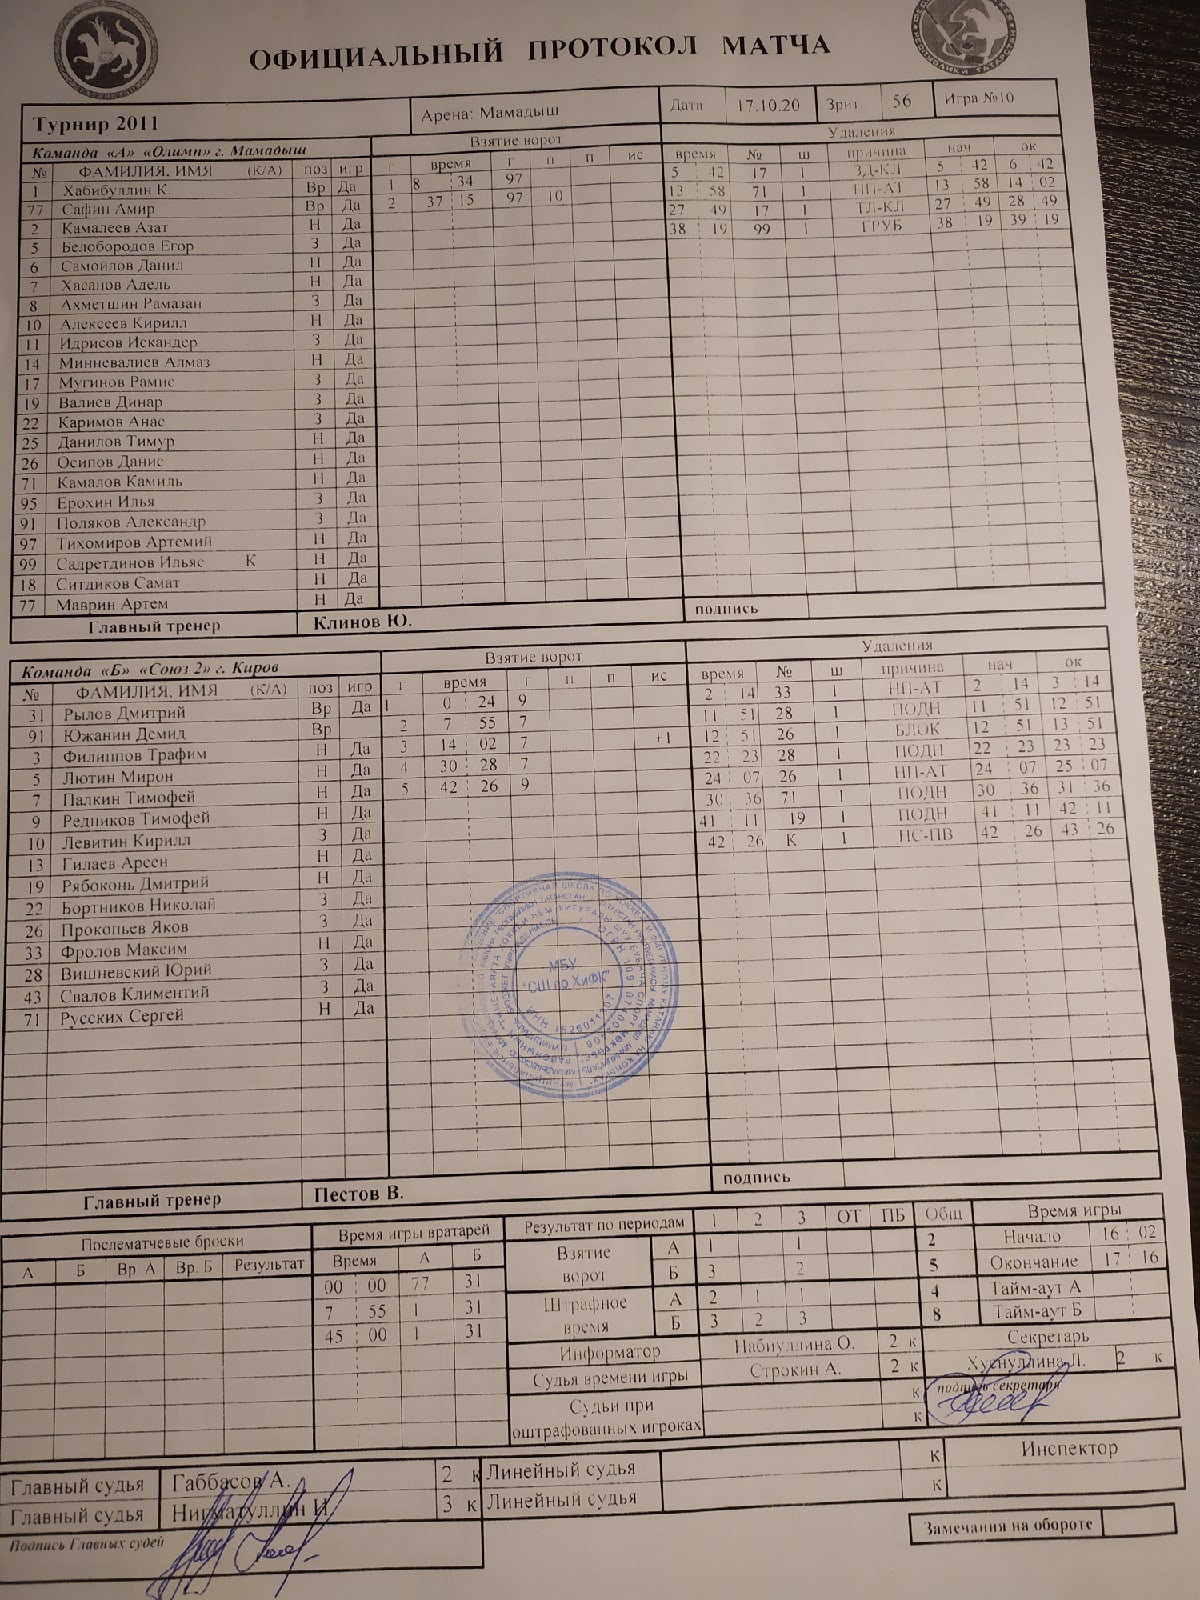 ОФИЦИАЛЬНЫЙ ПРОТОКОЛ МАТЧА
Турнир 2011 Арена: Мамадыш Дата 17.10.20 Зрит. 56 Игра №10
Команда «А» «Олимп» г. Мамадыш Взятие ворот Удаления
№ ФАМИЛИЯ, ИМЯ (К/А) поз игр г время г п п ис время № ш причина нач ок
1 Хабибуллин К. Вр Да 1 8 34 97 5 42 17 1 ЗД-КЛ 5 42 6 42
77 Сафин Амир Вр Да 2 37 15 97 10 13 58 71 1 НП-АТ 13 58 14 02
2 Камалеев Азат Н Да 27 49 17 1 ТЛ-КЛ 27 49 28 49
5 Белобородов Егор З Да 38 19 99 1 ГРУБ 38 19 39 19
6 Самойлов Данил Н Да
7 Хасанов Адель Н Да
8 Ахметшин Рамазан З Да
10 Алексеев Кирилл Н Да
11 Идрисов Искандер З Да
14 Минневалиев Алмаз Н Да
17 Мугинов Рамис З Да
19 Валиев Динар З Да
22 Каримов Анас З Да
25 Данилов Тимур Н Да
26 Осипов Данис Н Да
71 Камалов Камиль Н Да
95 Ерохин Илья З Да
91 Поляков Александр З Да
97 Тихомиров Артемий Н Да
99 Садретдинов Ильяс К Н Да
18 Ситдиков Самат Н Да
77 Маврин Артем Н Да
Главный тренер Клинов Ю. подпись
Команда «Б» «Союз 2» г. Киров Взятие ворот Удаления
№ ФАМИЛИЯ, ИМЯ (К/А) поз игр г время г п п ис время № ш причина нач ок
31 Рылов Дмитрий Вр Да 1 0 24 9 2 14 33 1 НП-АТ 2 14 3 14
91 Южанин Демид Вр 2 7 55 7 11 51 28 1 ПОДН 11 51 12 51
3 Филиппов Трафим Н Да 3 14 02 7 +1 12 51 26 1 БЛОК 12 51 13 51
5 Лютин Мирон Н Да 4 30 28 7 22 23 28 1 ПОДН 22 23 23 23
7 Палкин Тимофей Н Да 5 42 26 9 24 07 26 1 НП-АТ 24 07 25 07
9 Редников Тимофей Н Да 30 36 71 1 ПОДН 30 36 31 36
10 Левитин Кирилл З Да 41 11 19 1 ПОДН 41 11 42 11
13 Гилаев Арсен Н Да 42 26 К 1 НС-ПВ 42 26 43 26
19 Рябоконь Дмитрий Н Да
22 Бортников Николай З Да
26 Прокопьев Яков З Да
33 Фролов Максим Н Да
28 Вишневский Юрий З Да
43 Свалов Климентий З Да
71 Русских Сергей Н Да
МБУ
"СШ по ХиФК"
Главный тренер Пестов В. подпись
Послематчевые броски Время игры вратарей Результат по периодам 1 2 3 ОТ ПБ Общ Время игры
А Б Вр. А Вр. Б Результат Время А Б Взятие ворот А 1 1 2 Начало 16 02
00 00 77 31 Б 3 2 5 Окончание 17 16
7 55 1 31 Штрафное время А 2 1 1 4 Тайм-аут А
45 00 1 31 Б 3 2 3 8 Тайм-аут Б
Информатор Набиуллина О. 2 к Секретарь
Судья времени игры Строкин А. 2 к Хуснуллина Л. 2 к
Судьи при оштрафованных игроках к подпись секретаря
к
Главный судья Габбасов А. 2 к Линейный судья к Инспектор
Главный судья Нигматуллин И. 3 к Линейный судья к
Подпись Главных судей Замечания на обороте